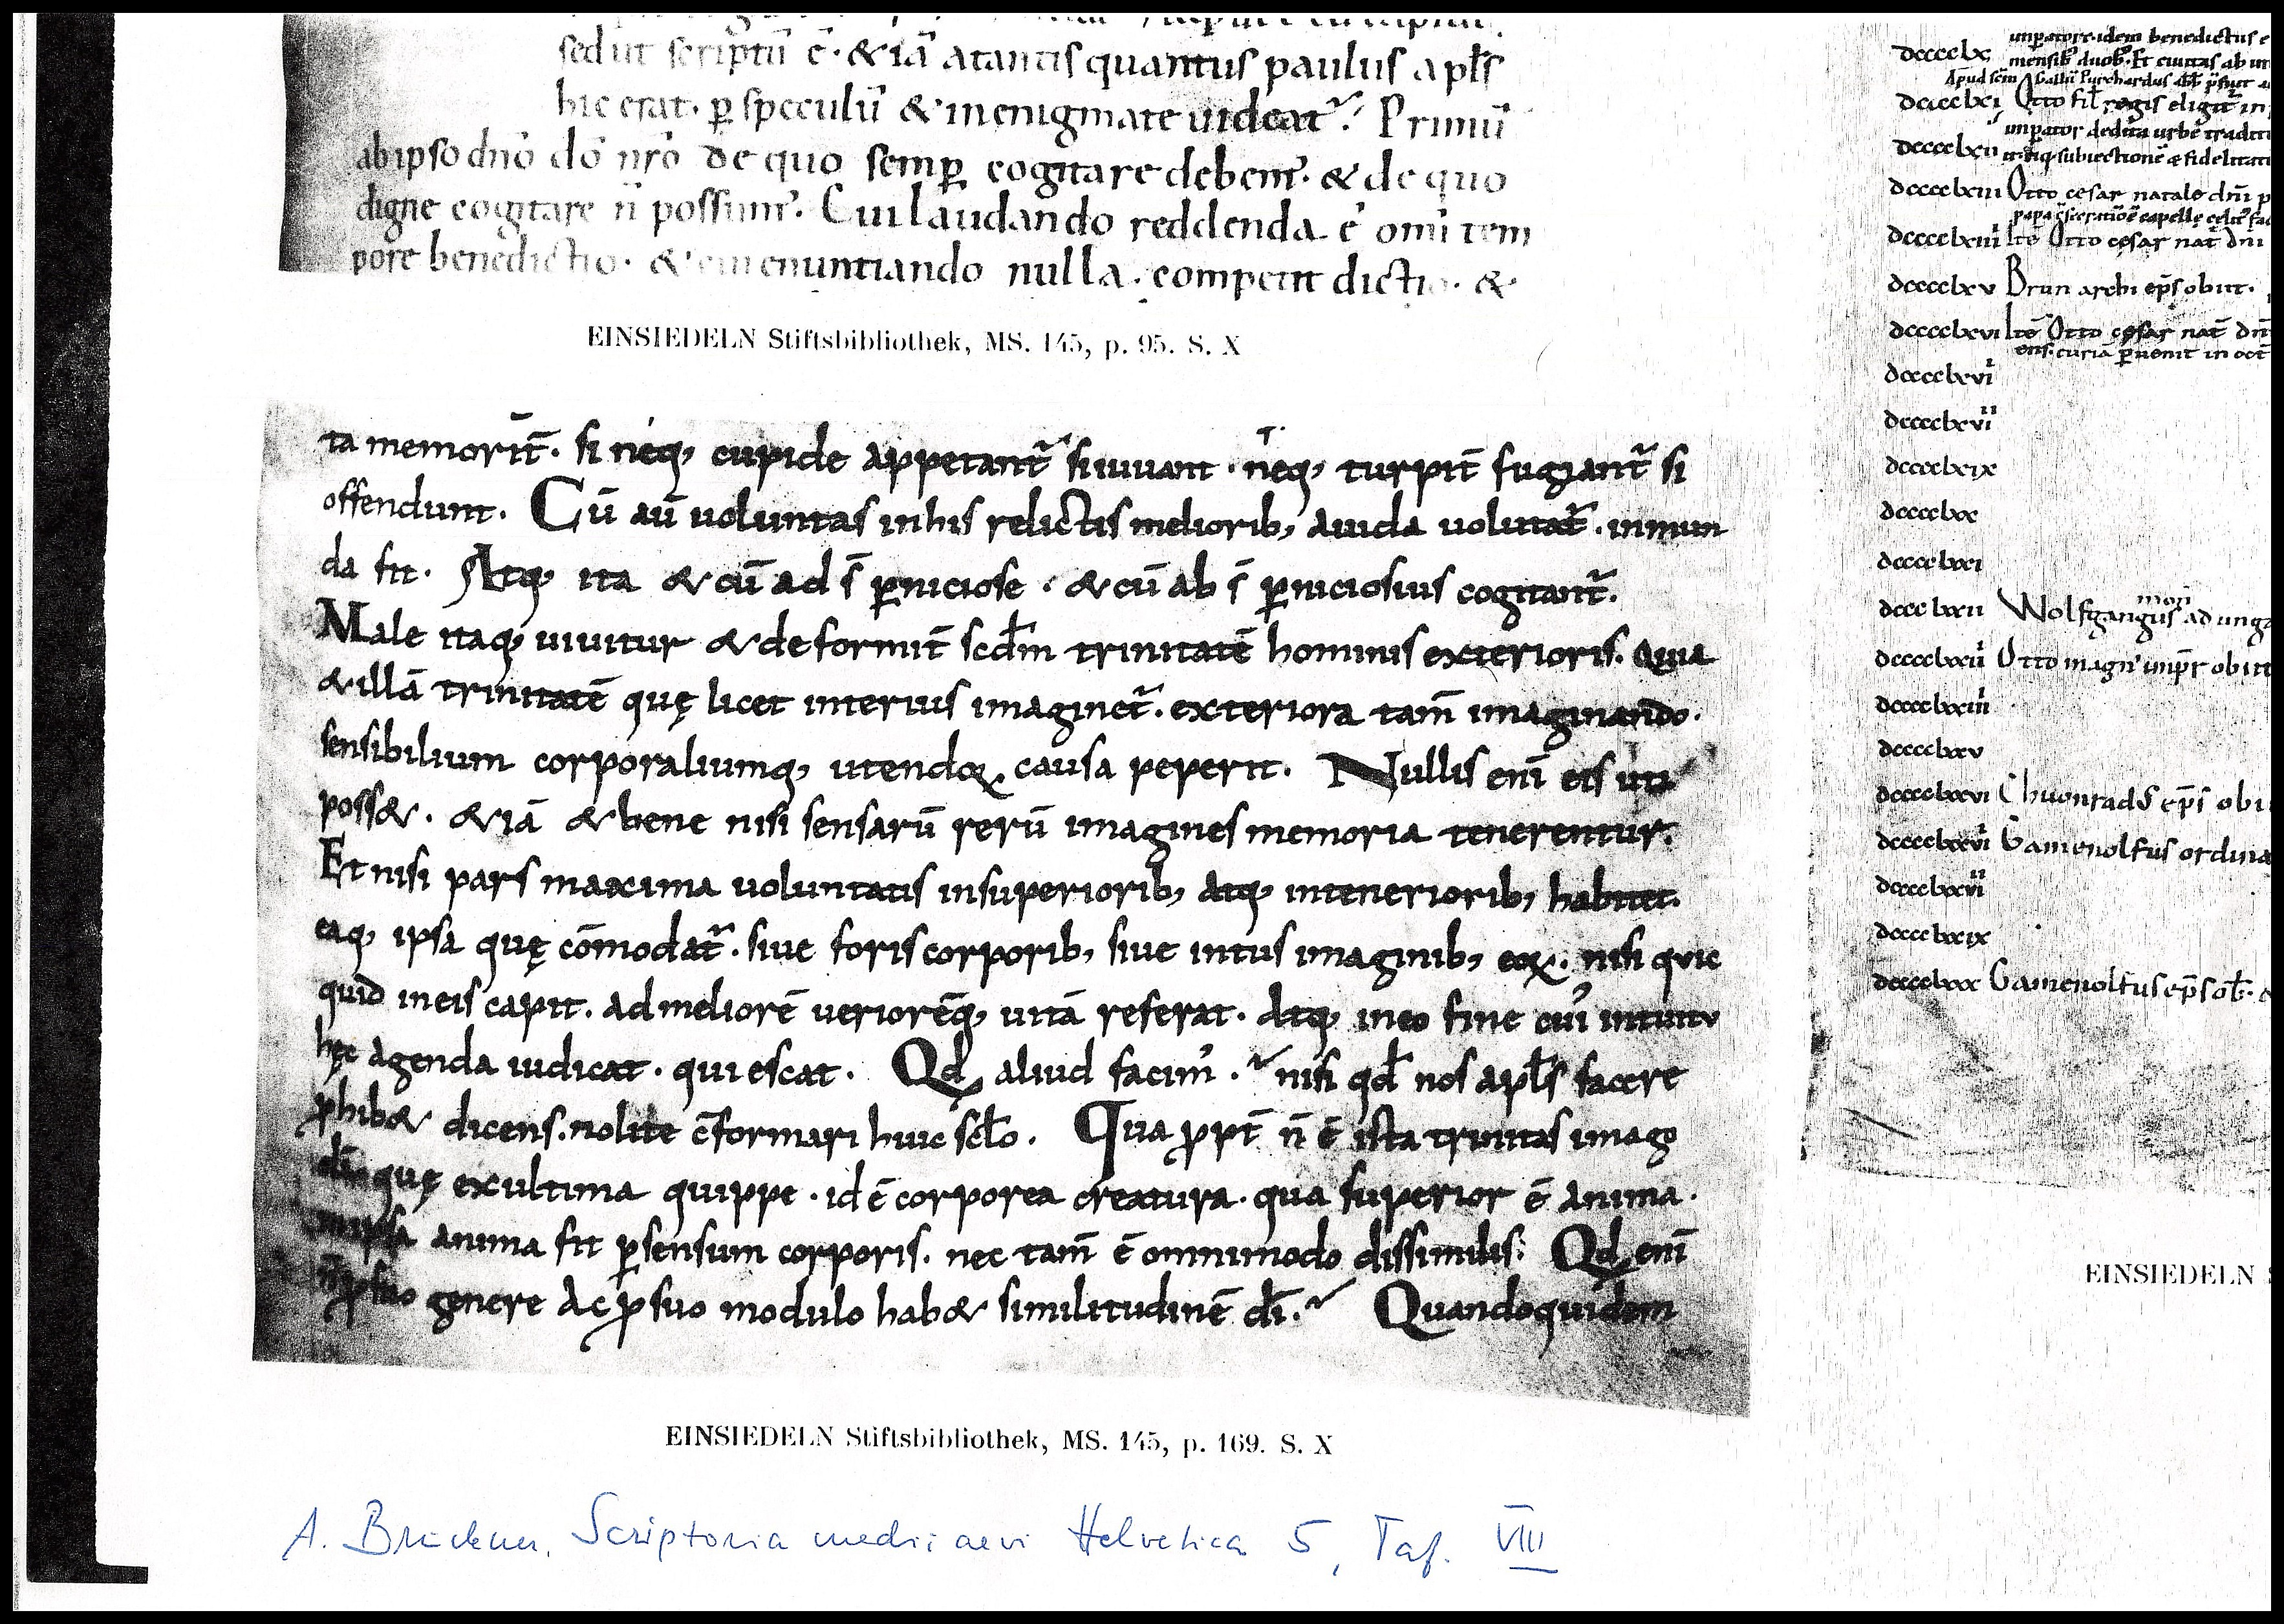 sed ut scriptū ē· & iā a tantis quantus paulus apl̄s
hic erat· ꝑ speculū & in enigmate uideat᷑? Primū
ab ipso dn̄o dō nr̄o de quo semꝑ cogitare debem᷒· & de quo
digne cogitare n̄ possum᷒· Cui laudando reddenda ē omī tem
pore benedictio· & enuntiando nulla competit dictio· &
EINSIEDELN Stiftsbibliothek, MS. 145, p. 95. S. X
ta memorit̄· si neq; cupide appetant᷑ si iuuant · neq; turpit̄ fugiant᷑ si
offendunt. Cū aū uoluntas in his relictis meliorib; auida uolutat᷑ · inmun
da fit. Atq; ita & cū ad ī ꝑniciose · & cū ab ī ꝑniciosius cogitant᷑.
Male itaq; uiuitur & deformit̄ scd̄m trinitatē hominis exterioris. Quia
& illā trinitatē quę licet interius imaginet᷑· exteriora tam̄ imaginando·
sensibilium corporaliumq; utendoꝝ causa peperit. Nullis enī eis uti
poss&· & iā & bene nisi sensarū rerū imagines memoria tenerentur.
Et nisi pars maxima uoluntatis in superiorib; atq; inteneriorib; habitet.
eaq; ipsa quę cōmodat᷑· siue foris corporib; siue intus imaginib; eoꝝ· nisi quic
quid in eis capit. ad meliorē ueriorēq; uitā referat. atq; in eo fine cui᷒ intuitu
hęc agenda iudicat · quiescat. Qd aliud facim᷒ · nisi qd̄ nos apl̄s facere
ꝓhib& dicens. nolite c̄formari huic scl̄o. Qua ꝓpt̄ n̄ ē ista trinitas imago
dī quę ex ultima quippe · id ē corporea creatura · qua superior ē anima·
in ipsa anima fit ꝑ sensum corporis. nec tam̄ ē omnimodo dissimilis: Qd enī
n̄ ꝓ suo genere ac ꝓ suo modulo hab& similitudinē dī. Quandoquidem
EINSIEDELN Stiftsbibliothek, MS. 145, p. 169. S. X
A. Bruckner, Scriptoria medii aevi Helvetica 5, Taf. VIII
dcccclx imperatore· idem benedictus
mensib; duob;· Et ciuitas ab
dcccclxi Otto fil̄ regis eligit᷑ in
imperator dedita urbe
dcccclxii itiq; subiectionē & fidelitatē
dcccclxiii Otto cesar natale dn̄i
dcccclxiiii Itē Otto cesar nat̄ dn̄i
dcccclxv Brun archi ep̄s obiit·
dcccclxvi Itē Otto cesar nat̄ dn̄i
curiā ꝑuenit in oct̄
dcccclxvii
dcccclxviii
dcccclxix
dcccclxx
dcccclxxi
dcccclxxii Wolfgangus mon̄ ad unga
dcccclxxiii Otto magn᷒ imp̄r obiit
dcccclxxiiii
dcccclxxv
dcccclxxvi Chuonrad᷒ ep̄s obi
dcccclxxvii Gamenolfus ordina
dcccclxxviii
dcccclxxix
dcccclxxx Gamenolfus ep̄s ob̄·
EINSIEDELN